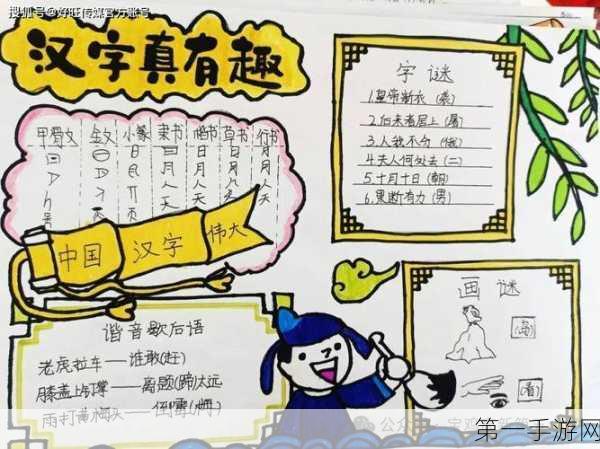 搜狐号@好旺传媒官方账号
汉字真有趣
甲骨文 金文 小篆 隶书 楷书 草书 行书
日 日 日 日
月 月 月 月
人 人 人 人
天 天 天 天
中国 汉字 伟大
字谜
1.皇帝新衣(袭)
2.后来者居上(屠)
3.人我不分(俄)
4.夫人何处去(二)
5.十月十日(朝)
6.果断有力(男)
谐音歇后语
老虎拉车——谁敢(赶)
膝盖上钉掌——离题(蹄)太远
雨打黄梅头——倒霉(梅)
画谜
(岛)
(看)
第一手游网